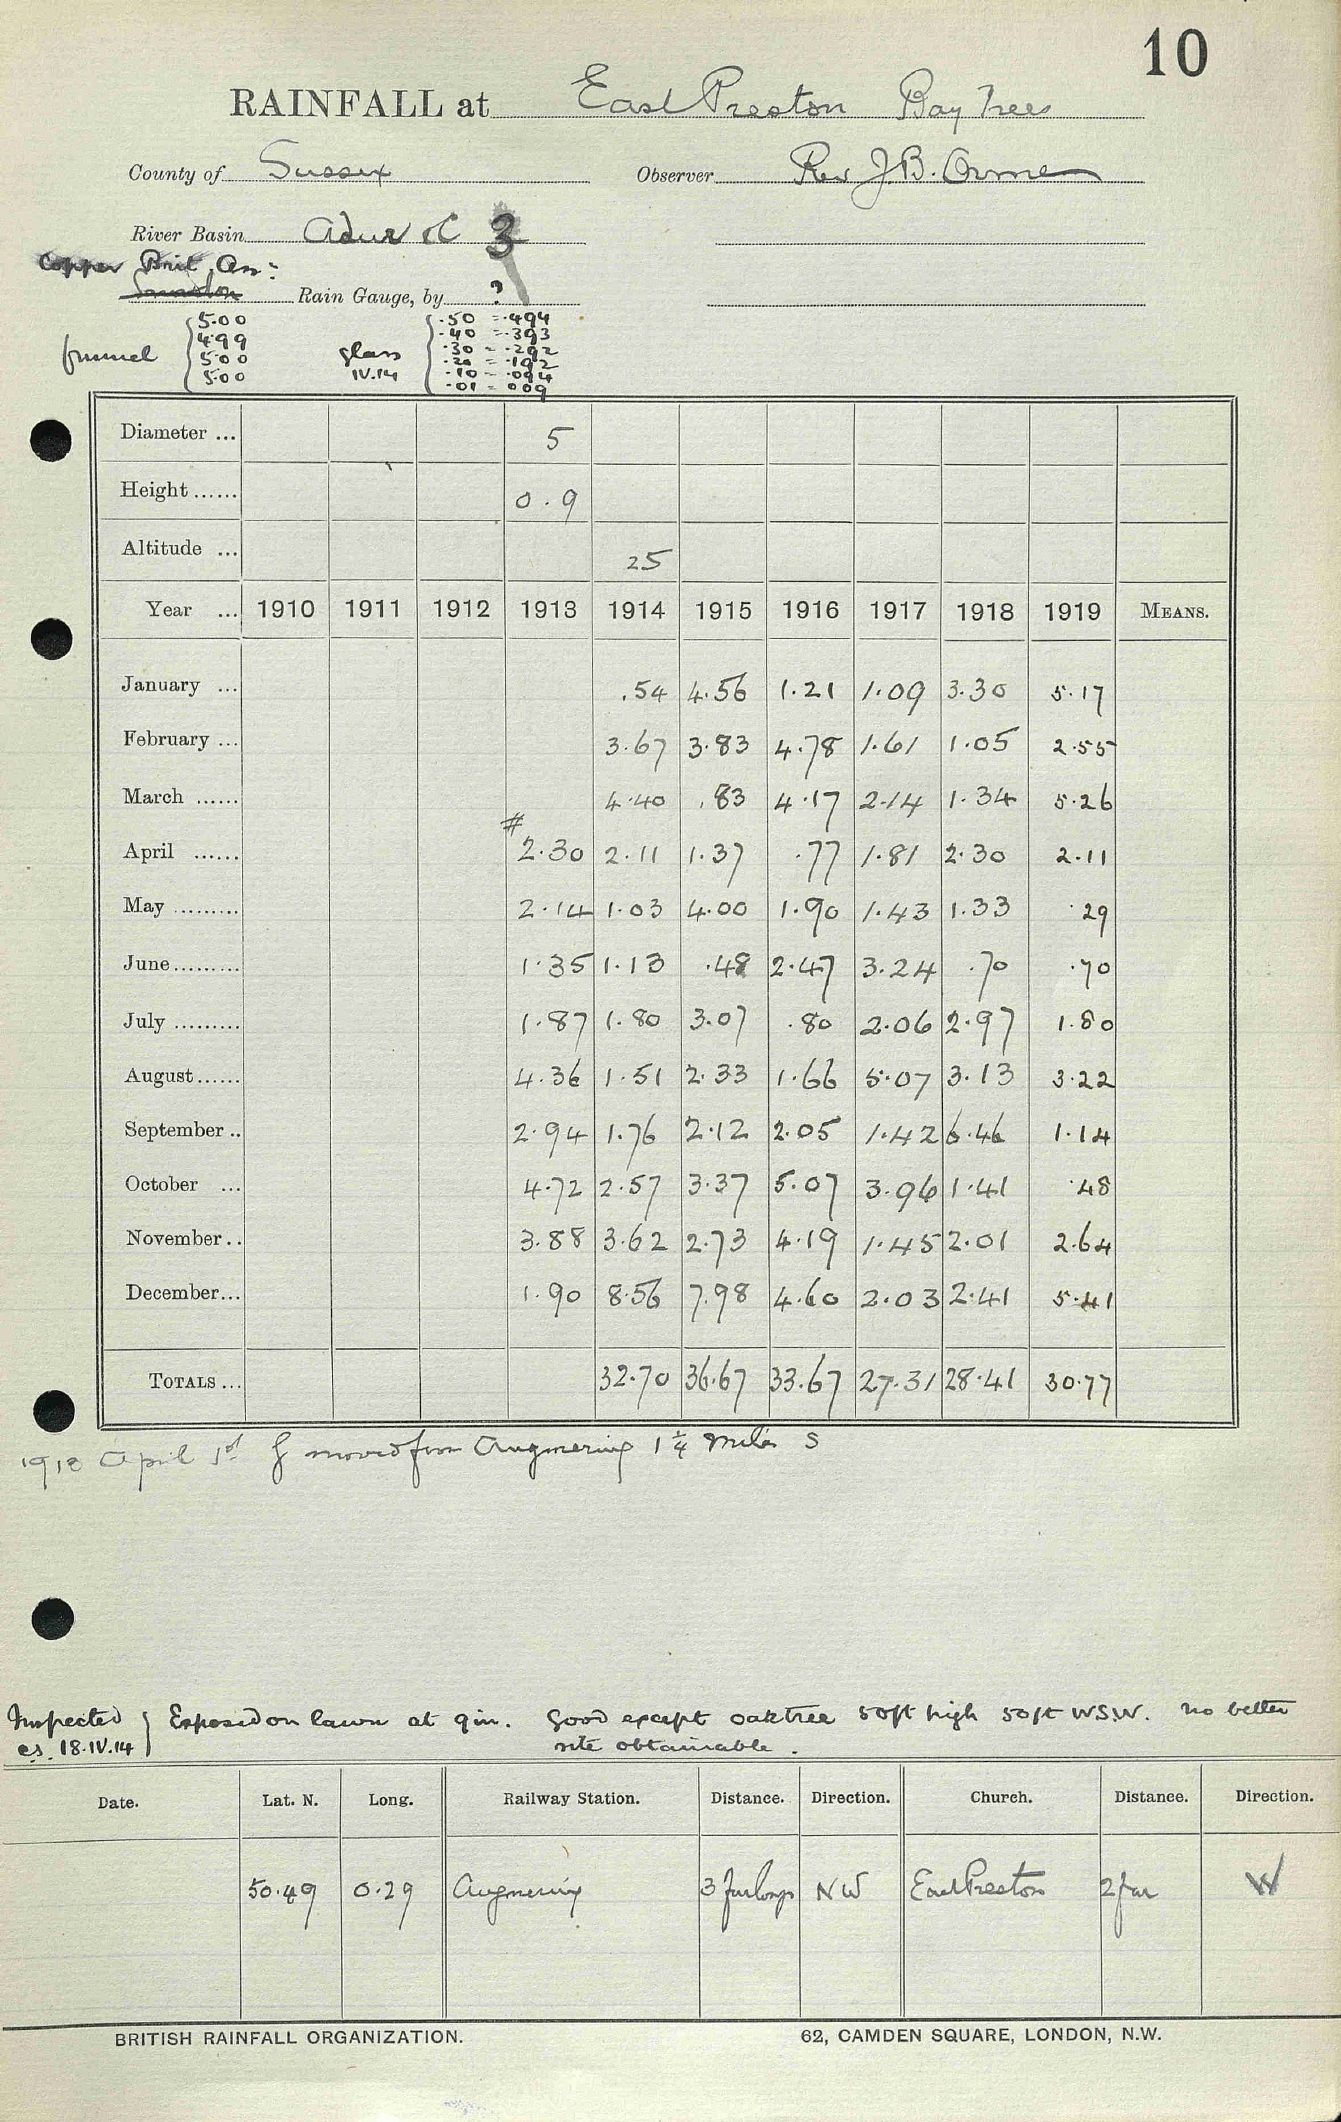 10
RAINFALL at East Preston Bay Trees
County of Sussex Observer Rev J.B. Orme
River Basin Adur &C 3
Copper Brit. Ass:
Snowdon Rain Gauge, by ?
funnel { 5.00 4.99 5.00 5.00 glass IV.14 { .50 = .494 .40 = .393 .30 = .292 .20 = .192 .10 = .094 .01 = 009
Diameter ... 5
Height ...... 0.9
Altitude ... 25
Year ... 1910 1911 1912 1913 1914 1915 1916 1917 1918 1919 MEANS.
January ... .54 4.56 1.21 1.09 3.30 5.17
February ... 3.67 3.83 4.78 1.61 1.05 2.55
March ...... 4.40 .83 4.17 2.14 1.34 5.26
#
April ...... 2.30 2.11 1.37 .77 1.81 2.30 2.11
May ......... 2.14 1.03 4.00 1.90 1.43 1.33 .29
June ......... 1.35 1.13 .48 2.47 3.24 .70 .70
July ......... 1.87 1.80 3.07 .80 2.06 2.97 1.80
August ...... 4.36 1.51 2.33 1.66 5.07 3.13 3.22
September .. 2.94 1.76 2.12 2.05 1.42 6.46 1.14
October ... 4.72 2.57 3.37 5.07 3.96 1.41 .48
November .. 3.88 3.62 2.73 4.19 1.45 2.01 2.64
December ... 1.90 8.56 7.98 4.60 2.03 2.41 5.41
TOTALS ... 32.70 36.67 33.67 27.31 28.41 30.77
1913 April 1st g moved from Angmering 1 1/4 miles S
Inspected } Exposed on lawn at 9 in. Good except oak tree 50ft high 50ft WSW. no better
cs. 18.IV.14 site obtainable.
Date. Lat. N. Long. Railway Station. Distance. Direction. Church. Distance. Direction.
50.49 0.29 Angmering 3 furlongs NW East Preston 2 fur W
BRITISH RAINFALL ORGANIZATION. 62, CAMDEN SQUARE, LONDON, N.W.